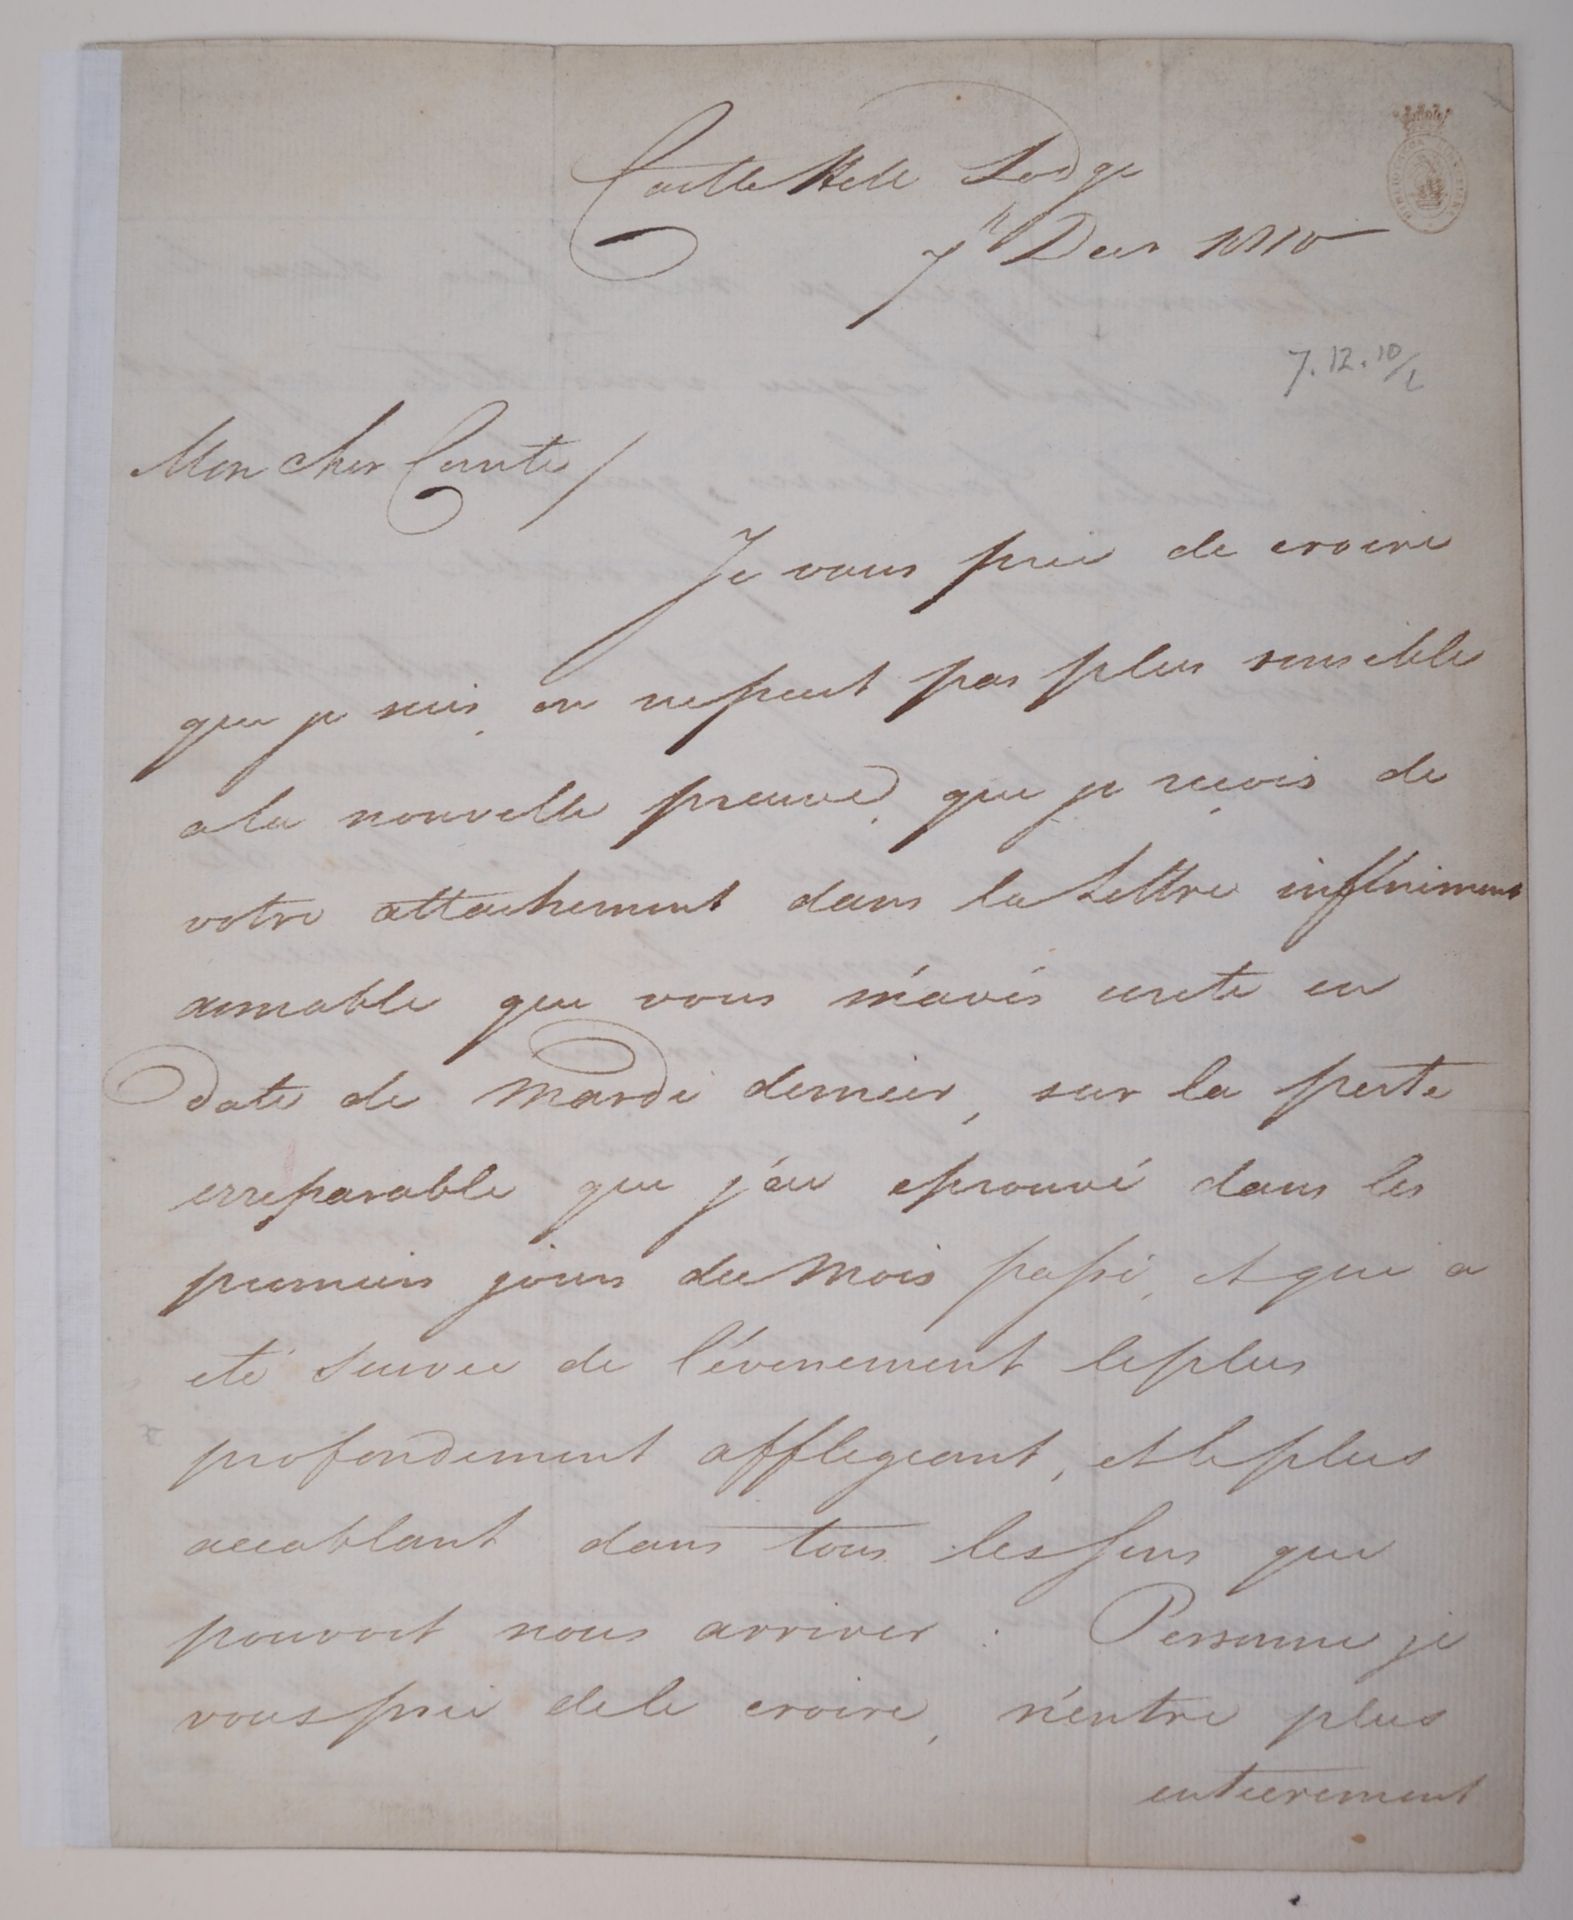 Castle Hill Lodge
7th Decr 1810
7.12.10/1
Mon cher Comte/
Je vous prie de croire
que je suis, on ne peut pas plus sensible
a la nouvelle preuve, que je reçois de
votre attachement dans la Lettre infiniment
aimable que vous m'avés ecrite en
date de Mardi dernier, sur la perte
irreparable que j'ai eprouvé dans les
premiers jours du Mois passé, et qui a
eté suivie de l'évenement le plus
profondement affligeant, et le plus
accablant dans tous les sens que
pouvoit nous arriver : Personne je
vous prie de le croire, n'entre plus
entierement